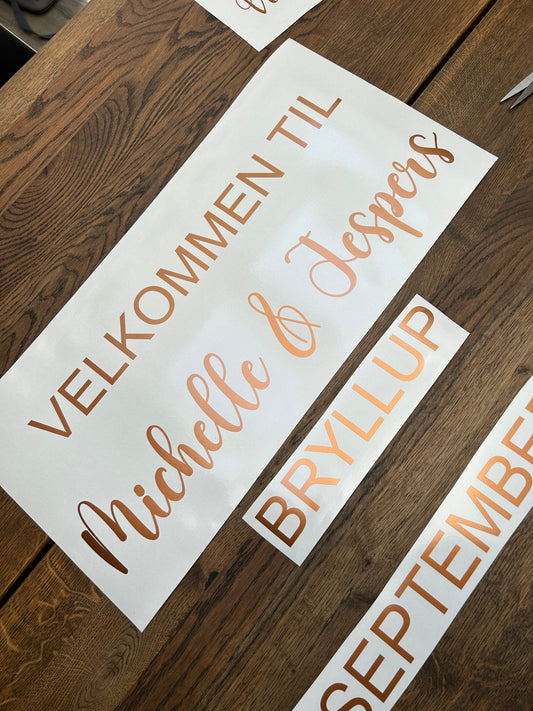 VELKOMMEN TIL
Michelle & Jespers
BRYLLUP
SEPTEMBER